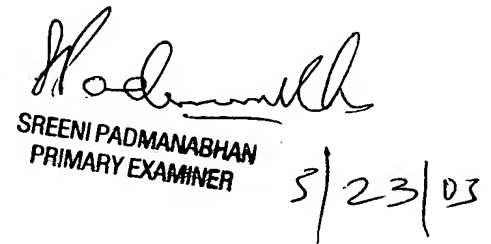 SREENI PADMANABHAN
PRIMARY EXAMINER
5/23/03